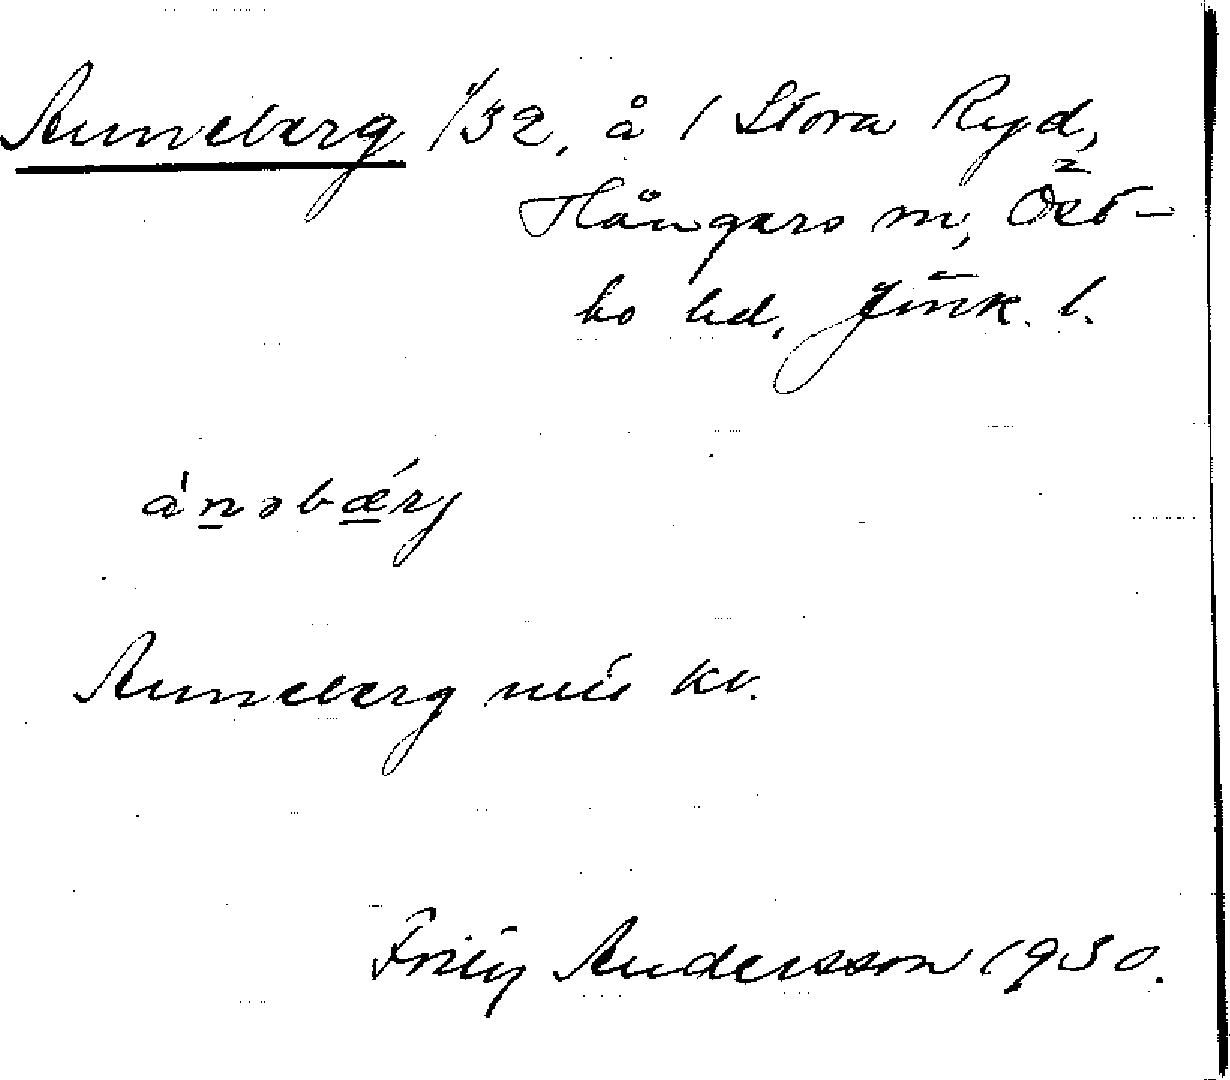 Anneberg 1/32, å 1 Stora Ryd,
Hångers sn, Öst-
bo hd, Jönk. l.
ànəbǽrj
Anneberg nu kv.
Fritz Andersson 1930.